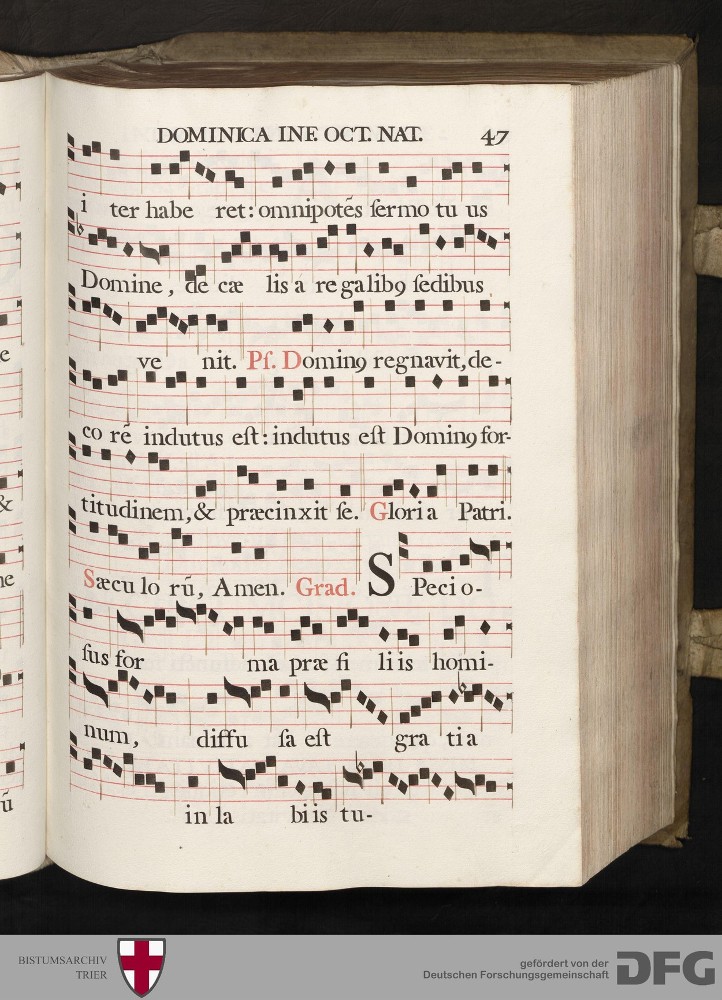 DOMINICA INF. OCT. NAT. 47
i ter habe ret: omnipotẽs ſermo tu us
Domine, de cæ lis a regalibꝯ ſedibus
ve nit. Pſ. Dominꝯ regnavit, de-
co rẽ indutus eſt: indutus eſt Dominꝯ for-
titudinem, & præcinxit ſe. Gloria Patri.
Sæcu lo rũ, Amen. Grad. SPecio-
ſus for ma præ fi liis homi-
num, diffu ſa eſt gra tia
in la biis tu-
e
&
ne
ũ
BISTUMSARCHIV
TRIER
gefördert von der
Deutschen Forschungsgemeinschaft
DFG